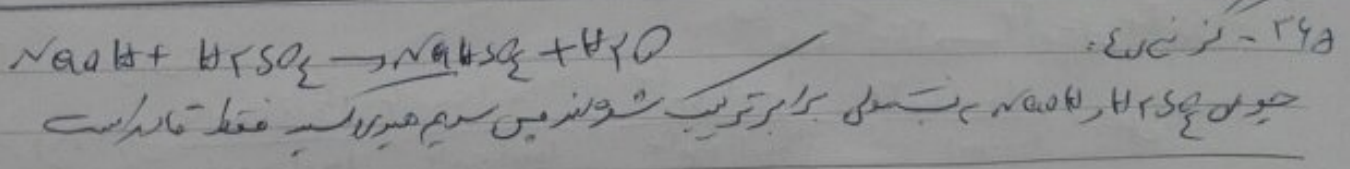 ۲۶۵ - گزینه ۴:
NaOH + H۲SO۴ → NaHSO۴ + H۲O
چون H۲SO۴ و NaOH به نسبت مولی برابر ترکیب شوند پس سدیم هیدروکسید فقط قادر است